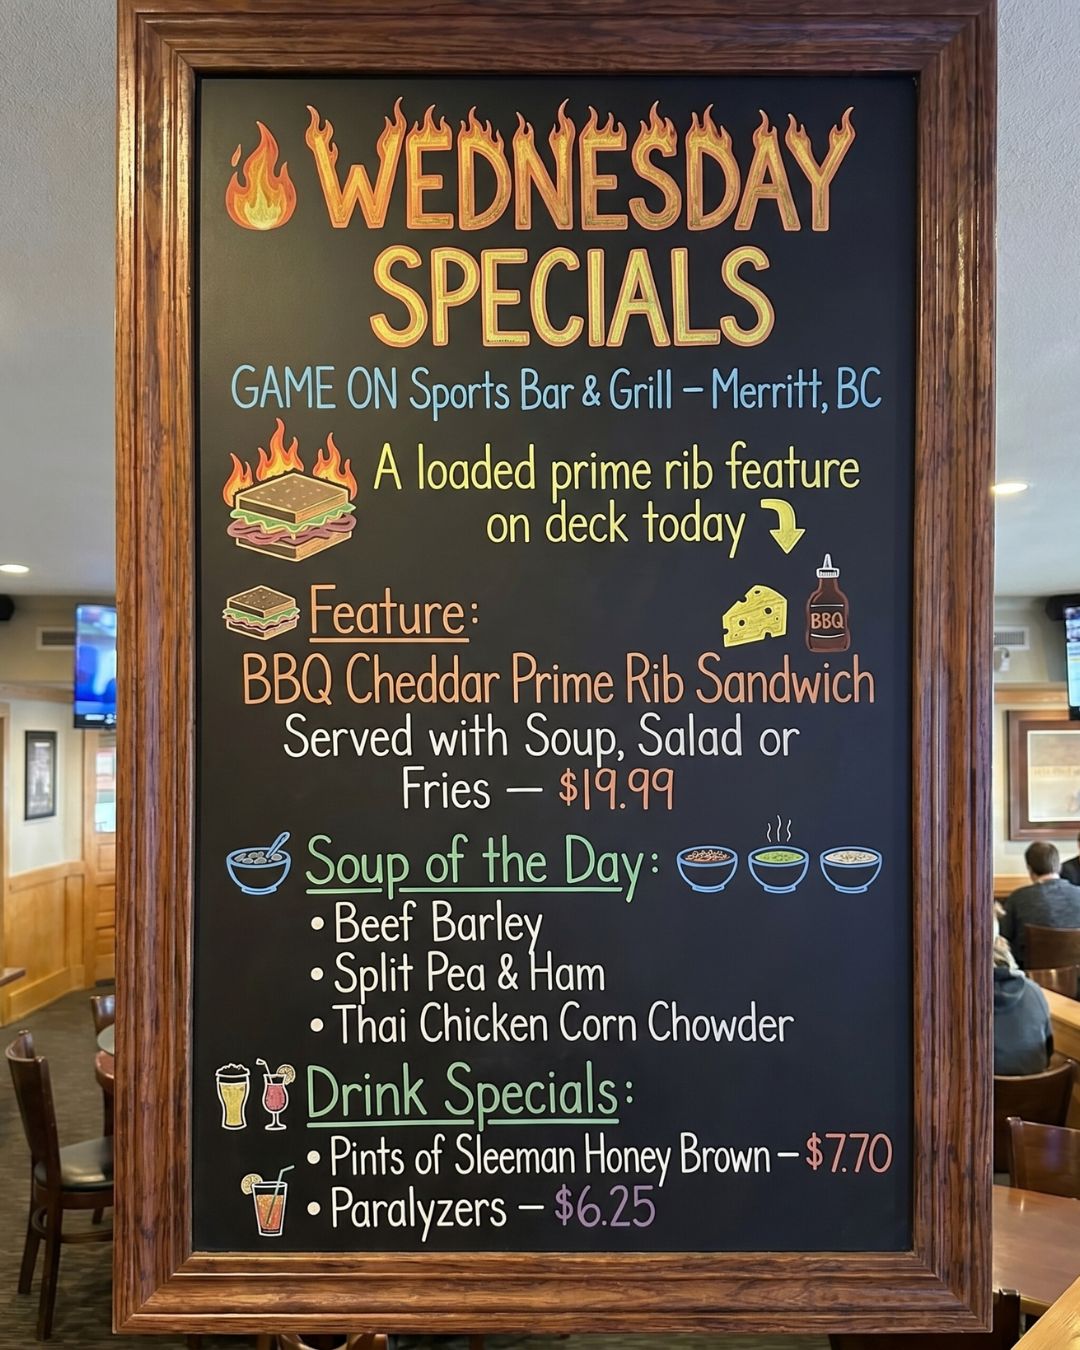 WEDNESDAY
SPECIALS
GAME ON Sports Bar & Grill – Merritt, BC
A loaded prime rib feature
on deck today
Feature:
BBQ
BBQ Cheddar Prime Rib Sandwich
Served with Soup, Salad or
Fries — $19.99
Soup of the Day:
• Beef Barley
• Split Pea & Ham
• Thai Chicken Corn Chowder
Drink Specials:
• Pints of Sleeman Honey Brown – $7.70
• Paralyzers – $6.25